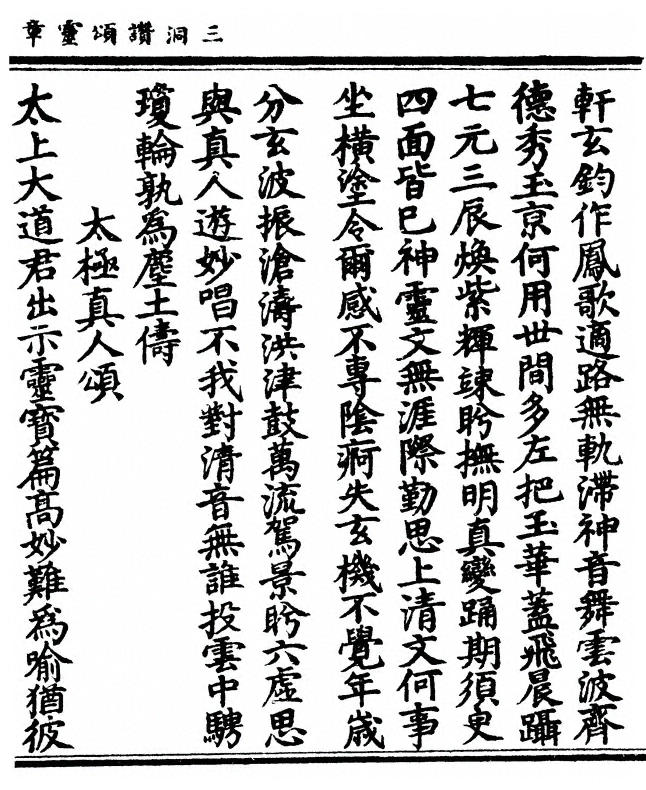 三洞讚頌靈章
軒玄鈞作鳳歌適路無軌滯神音舞雲波齊
德秀玉京何用世間多左把玉華蓋飛晨躡
七元三辰煥紫輝竦眄撫明真變踊期須臾
四面皆已神靈文無涯際勤思上清文何事
坐橫塗令爾感不專陰痾失玄機不覺年歲
分玄波振滄濤洪津鼓萬流駕景眄六虛思
與真人遊妙唱不我對清音無誰投雲中騁
瓊輪孰為塵土儔
太極真人頌
太上大道君出示靈寶篇高妙難為喻猶彼